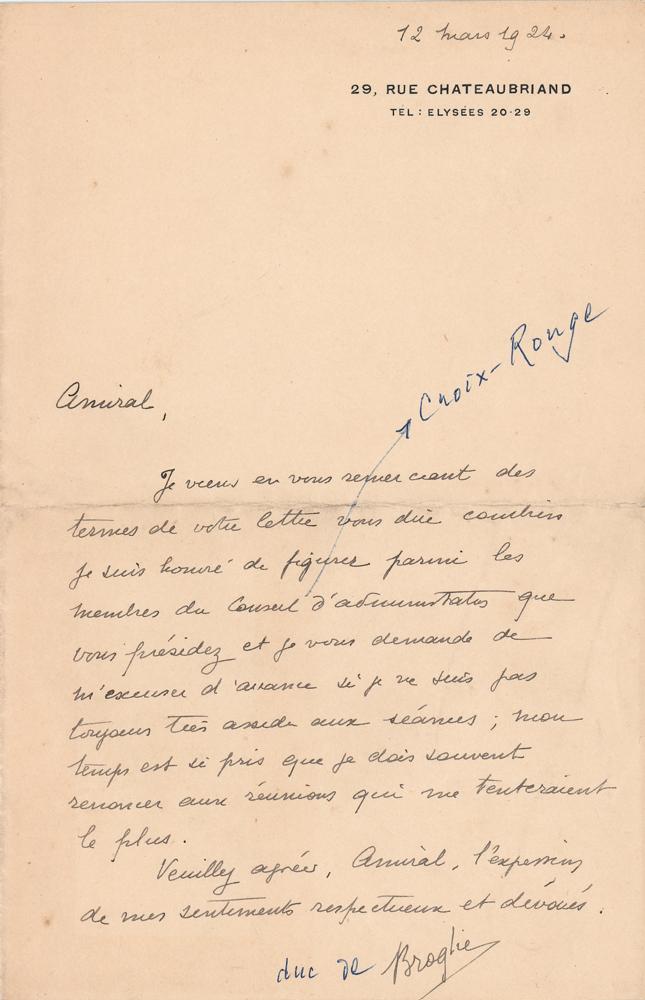 12 mars 1924.
29, RUE CHATEAUBRIAND
TEL : ELYSÉES 20-29
Croix-Rouge
Amiral,
Je viens en vous remerciant des
termes de votre lettre vous dire combien
je suis honoré de figurer parmi les
membres du Conseil d'administration que
vous présidez et je vous demande de
m'excuser d'avance si je ne suis pas
toujours très assidu aux séances ; mon
temps est si pris que je dois souvent
renoncer aux réunions qui me tenteraient
le plus.
Veuillez agréer, Amiral, l'expression
de mes sentiments respectueux et dévoués.
duc de Broglie